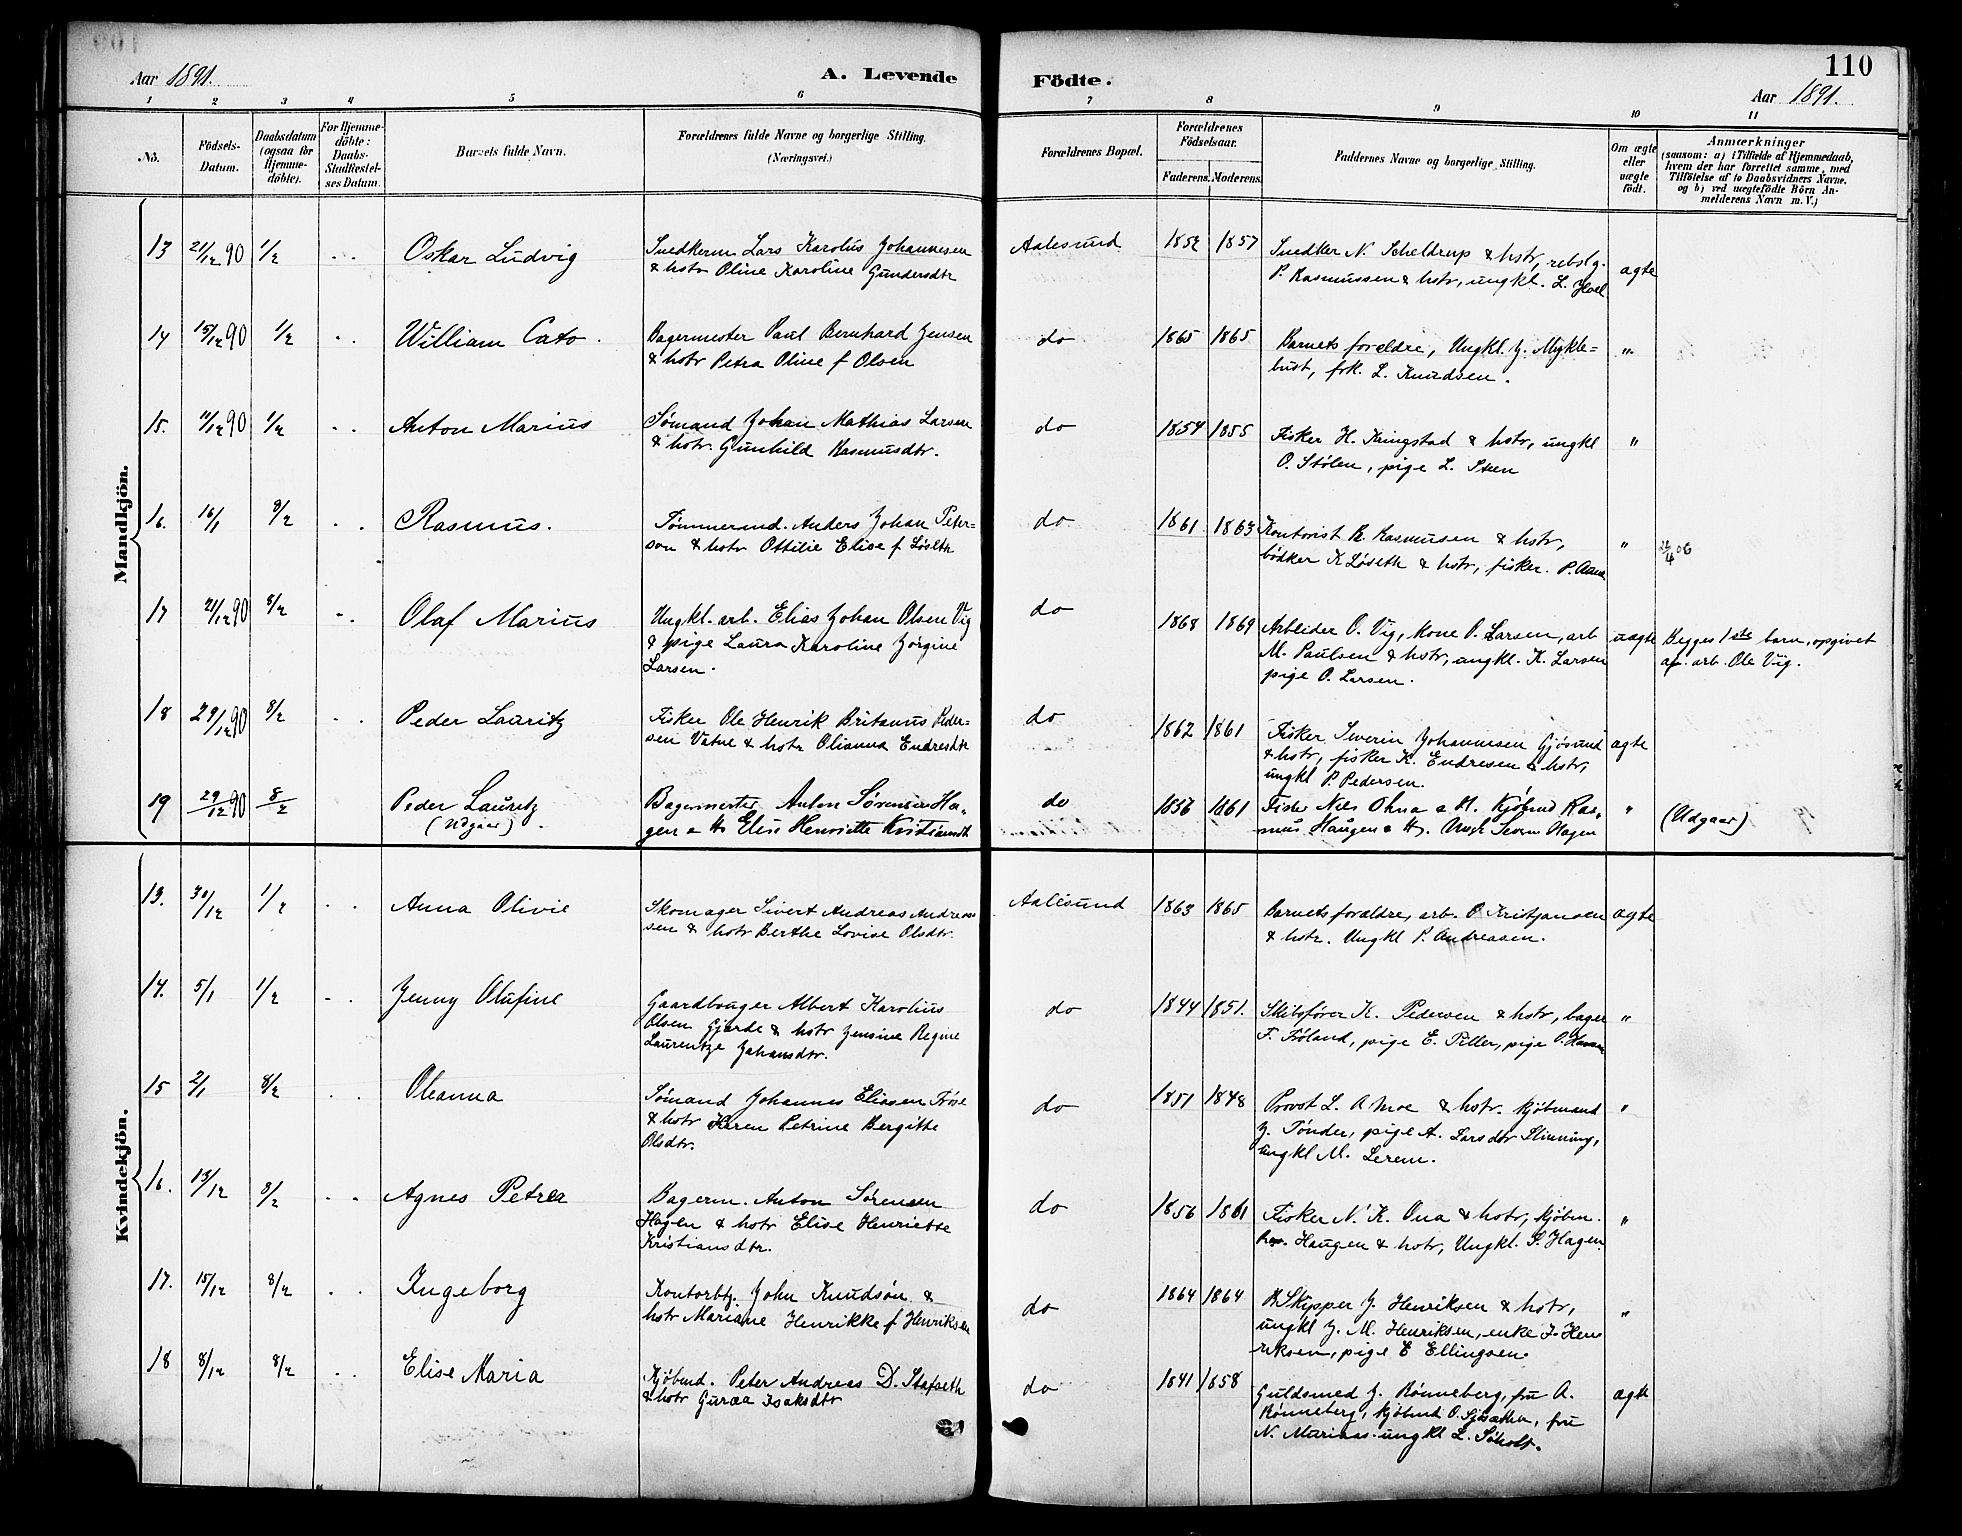 110
Aar 1891.
A. Levende Födte.
Aar 1891.
1 2 3 4 5 6 7 8 9 10 11
No.
Födsels-Datum.
Daabsdatum (ogsaa for Hjemme-döbte).
For Hjemme-döbte: Daabs-Stadfæstel-ses Datum.
Barnets fulde Navn.
Forældrenes fulde Navne og borgerlige Stilling.
(Næringsvei.)
Forældrenes Bopæl.
Forældrenes Födselsaar.
Faderens. Moderens.
Faddernes Navne og borgerlige Stilling.
Om ægte eller uægte födt.
Anmærkninger
(saasom: a) i Tilfælde af Hjemmedaab,
hvem der har forrettet samme, med
Tilföielse af to Daabsvidners Navne.
og b) ved uægtefödte Börn An-
melderens Navn m. V.)
Mandkjön.
13 21/12 90 1/2 - - Oskar Ludvig
Snedkerm Lars Karolus Johannesen
& hstr Oline Karoline Gundersdtr
Aalesund 1852 1857
Snedker N. Scheldrup & hstr, rebslg.
P. Rasmussen & hstr, ungkl. L. Hoel
ægte
14 15/12 90 1/2 - - William Cato
Bagermester Paul Bernhard Jensen
& hstr Petra Oline f Olsen
do 1865 1865
Barnets forældre, Ungkl. J. Mykle=
bust, frk. L. Knudsen.
"
15. 11/12 90 1/2 - - Anton Marius
Sømand Johan Mathias Larsen
& hstr. Gunhild Rasmusdtr.
do 1854 1855
Fisker H. Kringstad & hstr, ungkl
O. Stølen, pige L. Steen
"
16. 16/1 8/2 - - Rasmus.
Tømmermd. Anders Johan Peter=
sen & hstr Ottilie Elise f Løseth
do 1861 1863
Kontorist R. Rasmusen & hstr,
bødker K Løseth & hstr, fisker. P.
"
17 21/12 90 8/2 - Olaf Marius
Ungkl. arb. Elias Johan Olsen Vig
& pige Laura Karoline Jørgine
Larsen.
do 1868 1869
Arbeider O. Vig, kone O. Larsen, arb
M. Paulsen & hstr, ungkl. K. Larsen
pige O. Larsen.
uægte
Begges 1ste barn, opgivet
af arb. Ole Vig.
18 29/12 90 8/2 - - Peder Lauritz
Fisker Ole Henrik Britanus Peder=
sen Vatne & hstr Olianna Endresdtr
do 1862 1861
Fisker Severin Johannesen Gjøsund
& hstr, fisker K. Endresen & hstr,
ungkl P. Pedersen.
ægte
19 29/12 90 8/2 Peder Lauritz
(Udgaar)
Bagermester Anton Sørensen Ha-
gen & H. Elise Henriette Kristiansdtr
do 1856 1861
Fisker Nils Ohna & H. Kjøbmd Ras-
mus Haugen & H. Ungk Severin Hagen
"
(Udgaar)
Kvindekjön.
13. 30/12 1/2 - - Anna Olivie
Skomager Sivert Andreas Andreas
sen & hstr Berthe Lovise Olsdtr.
Aalesund 1863 1865
Barnets forældre, arb. O Kristjansen
& hstr. Ungkl P. Andreasen.
ægte
14. 5/1 1/2 - - Jenny Olufine
Gaardbruger Albert Karolius
Olsen Gjerde & hstr Jensine Regine
Laurentze Johansdtr.
do 1844 1851.
Skibsfører K. Pedersen & hstr, bager
F. Frøland, pige E. Piller, pige O. Hansen
"
15 2/1 8/2 - - Oleanna
Sømand Johannes Eliasen Trøse
& hstr Karen Petrine Bergitte
Olsdtr.
do 1851 1848
Provst L. A Moe & hstr. kjøbmand
J. Tønder, pige A. Larsdtr Slinning,
ungkl M. Lerem.
"
16. 13/12 8/2 - - Agnes Petrea
Bagerm. Anton Sørensen
Hagen & hstr Elise Henriette
Kristiansdtr.
do 1856 1861
Fisker N. K. Ona & hstr, kjøbm.
Haugen & hstr, Ungkl. S. Hagen.
"
17. 15/12 8/2 - - Ingeborg
Kontorbtj. John Knudsøn &
hstr Mariane Henrikke f Henriksen
do 1864 1864
Skipper J. Henriksen & hstr,
ungkl J. M. Henriksen, enke J. Hen
riksen, pige E Ellingsen.
"
18 8/12 8/2 - - Elise Maria
Kjøbmd. Peter Andreas D. Stafseth
& hstr Guræa Isaksdtr
do 1841 1858
Guldsmed J. Rønneberg, fru A.
Rønneberg, kjøbmd O. , fru
N. ungkl L. Søholt.
ægte